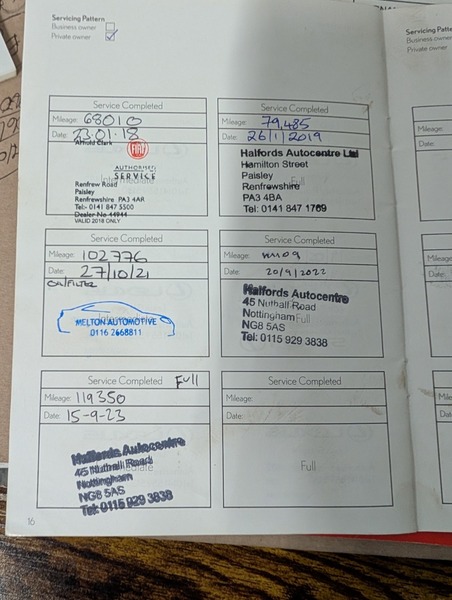 Servicing Pattern
Business owner
Private owner
Servicing Pat
Business own
Private owner
Service Completed
Mileage: 68010
Date: 23.01.18
Arnold Clark
FIAT
AUTHORISED
SERVICE
Intermediate
Renfrew Road
Paisley
Renfrewshire PA3 4AR
Tel:- 0141 847 5500
Dealer No 44944
VALID 2018 ONLY
Service Completed
Mileage: 79,485
Date: 26/1/2019
Halfords Autocentre Ltd
Hamilton Street
Paisley
Renfrewshire
Full
PA3 4BA
Tel: 0141 847 1769
Service Completed
Mileage: 102776
Date: 27/10/21
Oil/Filter
MELTON AUTOMOTIVE
0116 2668811
Service Completed
Mileage:
Date: 20/9/2022
Halfords Autocentre
45 Nuthall Road
Nottingham
Full
NG8 5AS
Tel: 0115 929 3838
Service Completed Full
Mileage: 119350
Date: 15-9-23
Halfords Autocentre
45 Nuthall Road
Nottingham
NG8 5AS
Tel: 0115 929 3838
Service Completed
Mileage:
Date:
Full
16
Mileage:
Date:
Mileage:
Date:
Mileage:
Date: